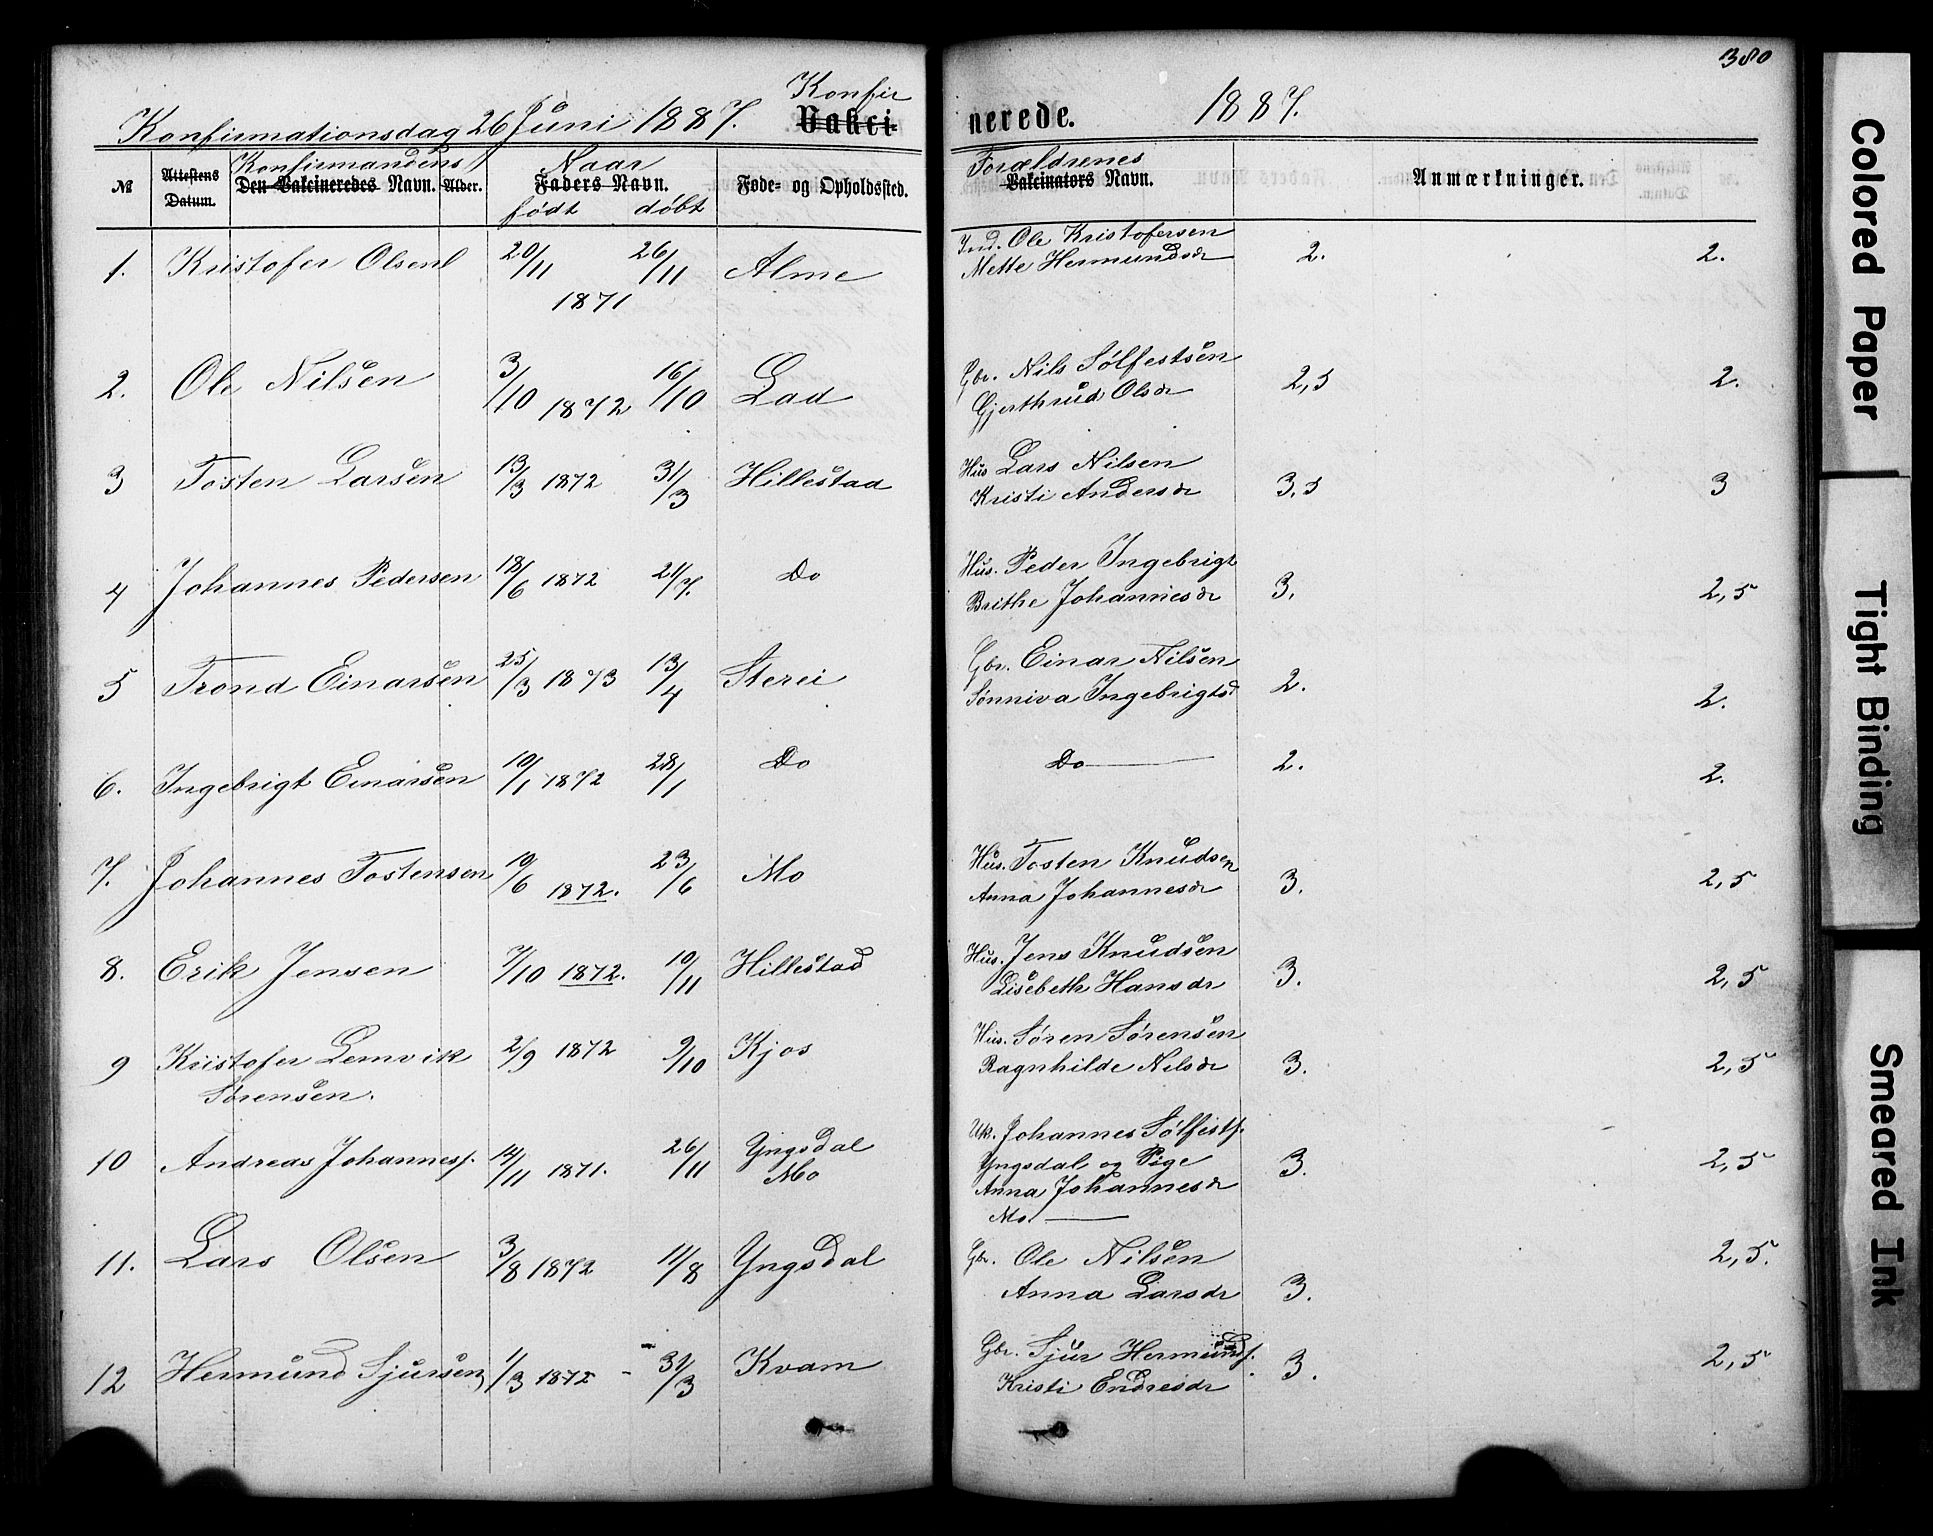 380
Konfirmationsdag 26 Juni 1887. Konfir
Vakci-nerede. 1887.
№ Attestens Datum. Konfirmandens Den Vakcineredes Navn. Alder. Naar Faders Navn. født døbt Føde- og Opholdssted. Forældrenes Vakcinators Navn. Anmærkninger.
1. Kristofer Olsen 20/11 1871 26/11 Alme Ind. Ole Kristofersen 2. 2.
Mette Hermundsdr
2. Ole Nilsen 3/10 1872 16/10 Lad Gbr. Nils Sølfestsen 2,5 2.
Gjerthrud Olsdr
3 Tosten Larsen 13/3 1872 31/3 Hillestad Hus Lars Nilsen 3,5 3
Kristi Andersdr
4 Johannes Pedersen 18/6 1872 21/7. Do Hus. Peder Ingebrigt 3. 2,5
Brithe Johannesdr
5 Trond Einarsen 25/3 1873 13/4 Sterei Gbr. Einar Nilsen 2. 2.
Sønniva Ingebrigtsd
6. Ingebrigt Einarsen 10/1 1872 28/1 Do Do 2. 2.
7. Johannes Tostensen 19/6 1872. 23/6 Mo Hus. Tosten Knudsen 3. 2,5
Anna Johannesdr
8. Erik Jensen 7/10 1872. 10/11 Hillestad Hus. Jens Knudsen 3. 2,5
Lisebeth Hansdr
9 Kristofer Lemvik 2/9 1872 9/10 Kjos Hus. Søren Sørensen 3. 2,5
Sørensen. Ragnhilde Nilsdr
10 Andreas Johanness. 14/11 1871. 26/11 Yngsdal Uk. Johannes Sølfests. 3. 2,5
Mo Yngsdal og Pige
Anna Johannesdr
Mo
11. Lars Olsen 3/8 1872 11/8 Yngsdal Gbr. Ole Nilsen 3. 2,5.
Anna Larsdr
12 Hermund Sjursen 1/3 1872 - 31/3 Kvam Gbr. Sjur Hermunds. 3. 2,5
Kristi Endresdr
Colored Paper
Tight Binding
Smeared Ink